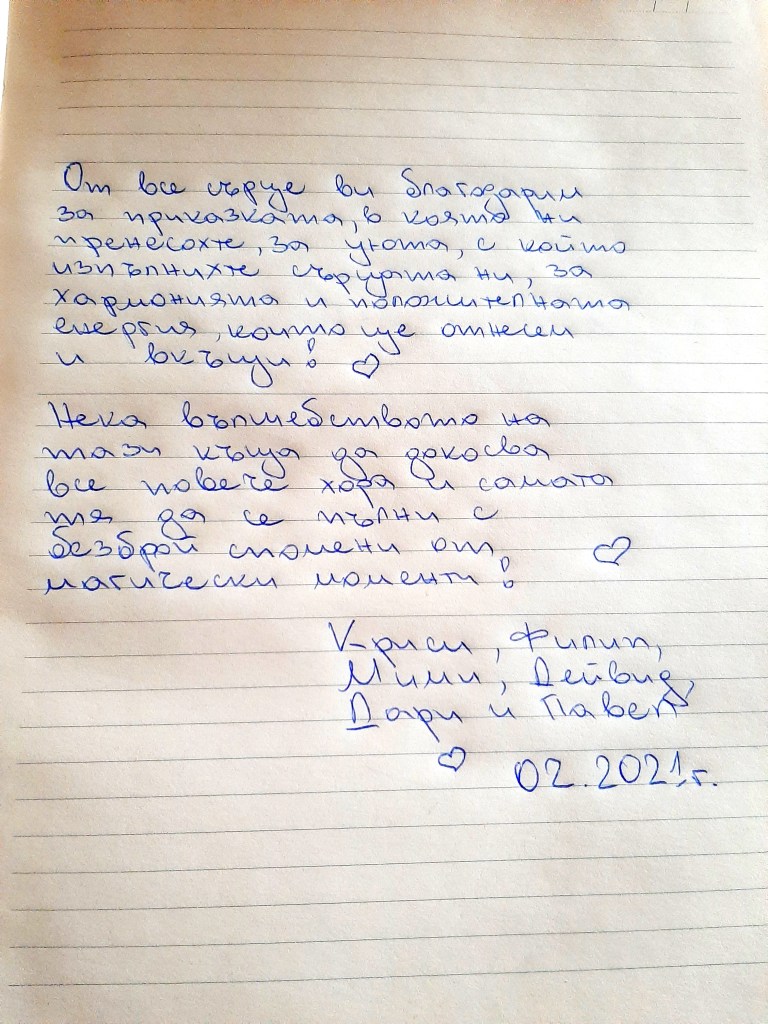 От все сърце ви благодарим
за приказката, в която ни
пренесохте, за уюта, с който
изпълнихте сърцата ни, за
хармонията и положителната
енергия, които ще отнесем
и вкъщи! ♡
Нека вълшебството на
тази къща да докосва
все повече хора и самата
тя да се пълни с
безброй спомени от
магически моменти! ♡
Криси, Филип,
Мими, Дейвид,
Дари и Павел
♡ 02.2021г.